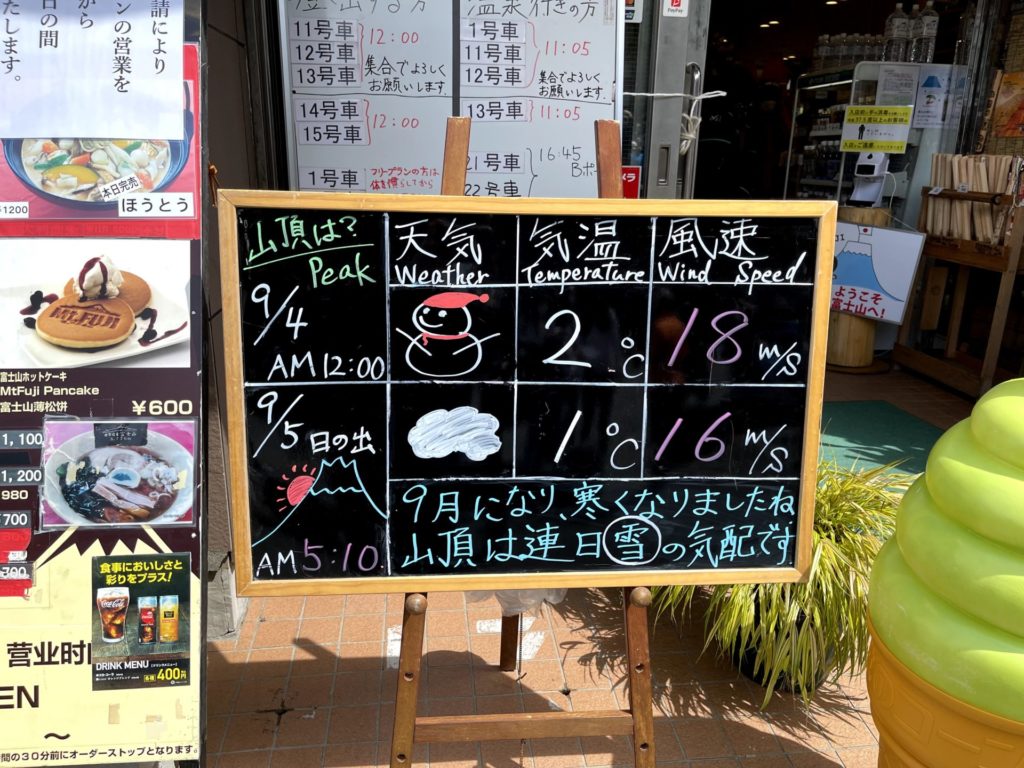 請により
ンの営業を
から
日の間
たします。
本日完売
ほうとう
¥1200
MT.FUJI
富士山ホットケーキ
MtFuji Pancake
富士山薄松饼
¥600
1,100
1,200
980
700
食事においしさと
彩りをプラス!
Coca-Cola
DRINK MENU
各種 400円
营业时
EN
~
間の30分前にオーダーストップとなります。
11号車
12号車
13号車
12:00
集合でよろしく
お願いします。
14号車
15号車
12:00
1号車
フリープランの方は
体を慣らしてから
温泉行きの方
1号車
11号車
12号車
11:05
集合でよろしく
お願いします。
13号車
11:05
21号車
22号車
16:45
PayPay
山頂は?
Peak
天気
Weather
気温
Temperature
風速
Wind Speed
9/4
AM 12:00
2℃
18 m/s
9/5 日の出
AM 5:10
1℃
16 m/s
9月になり、寒くなりましたね
山頂は連日雪の気配です
ようこそ
富士山へ!